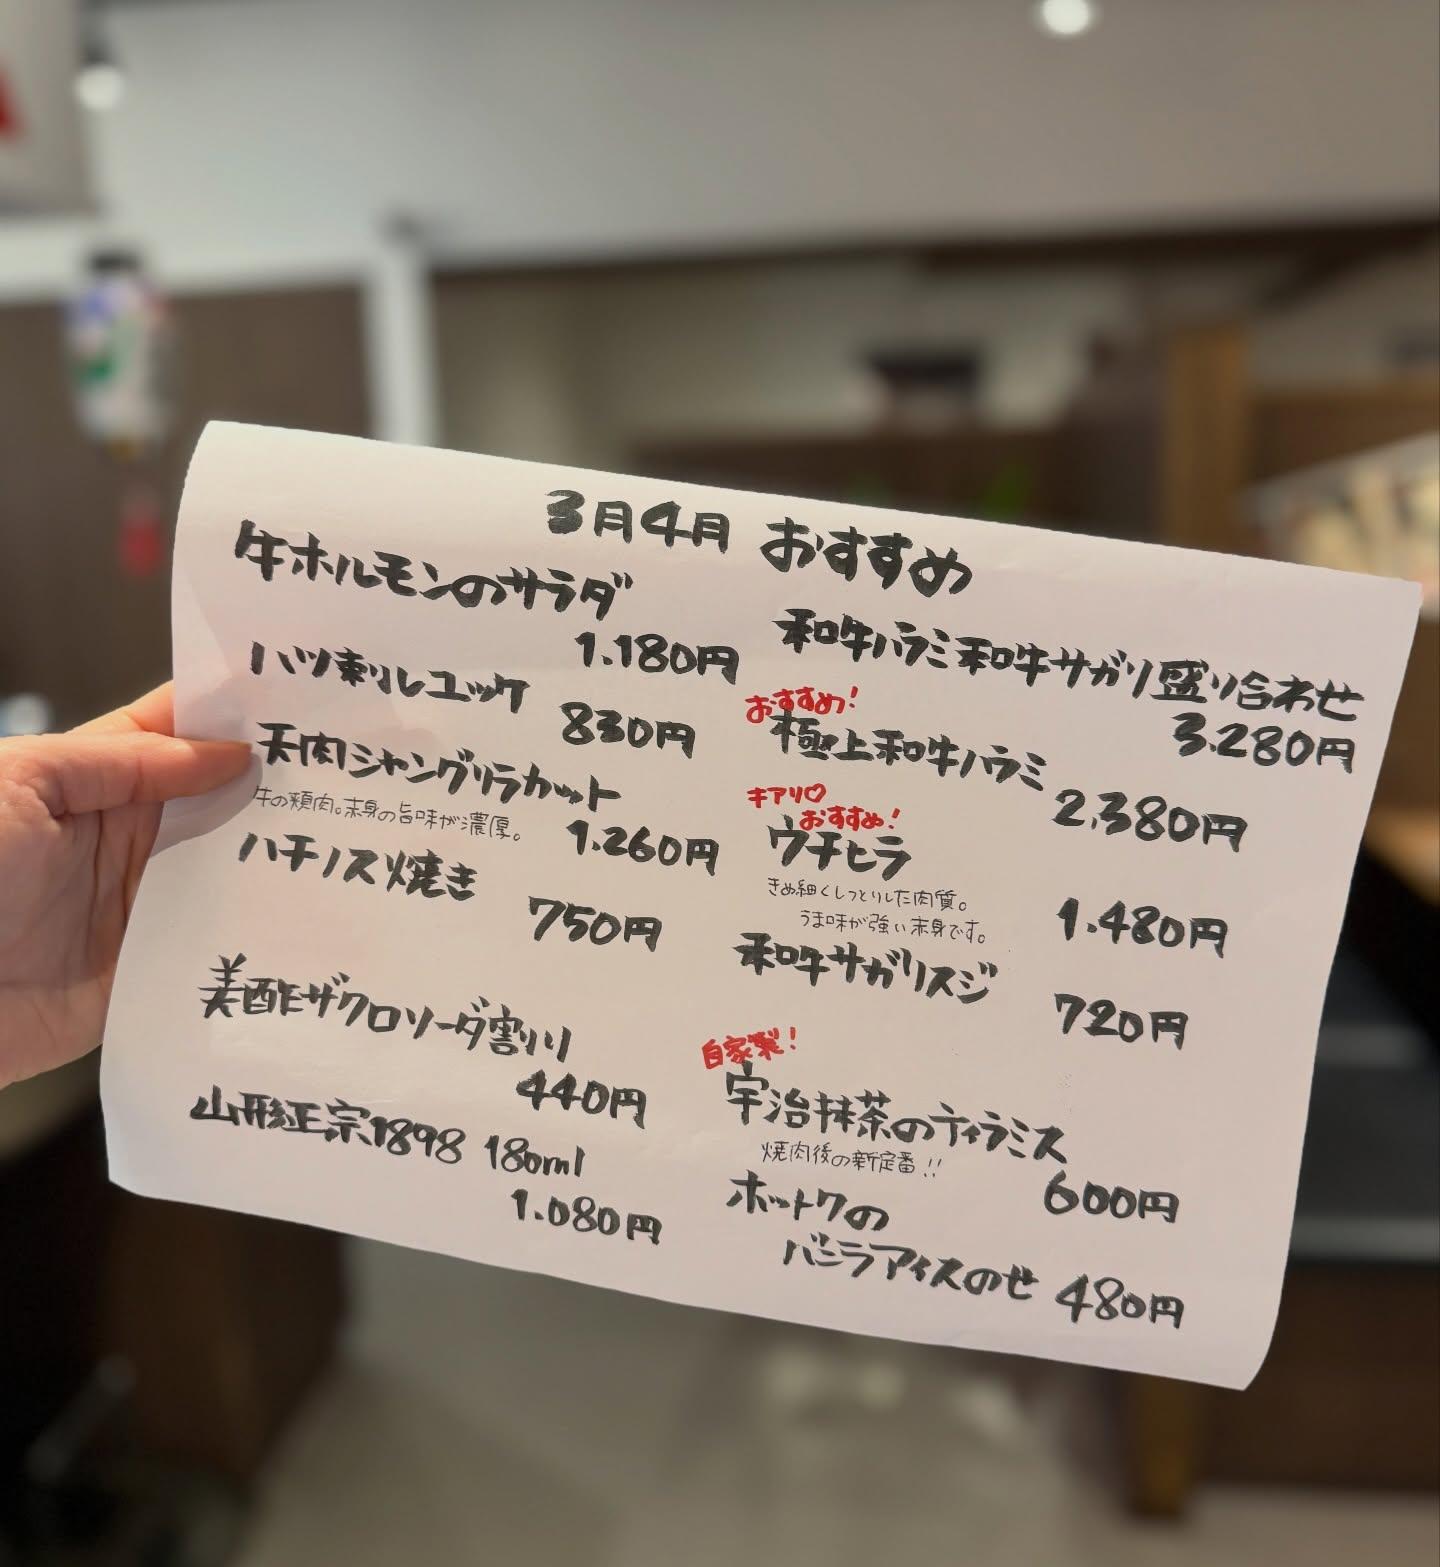 3月4月 おすすめ
牛ホルモンのサラダ
1.180円
ハツ刺しユッケ
830円
天肉シャングリラカット
牛の頬肉。赤身の旨味が濃厚。
1.260円
ハチノス焼き
750円
美酢ザクロソーダ割り
440円
山形正宗1898 180ml
1.080円
和牛ハラミ和牛サガリ盛り合わせ
3.280円
おすすめ!
極上和牛ハラミ
2.380円
キアリ♡
おすすめ!
ウチヒラ
きめ細くしっとりした肉質。
うま味が強い赤身です。
1.480円
和牛サガリスジ
720円
自家製!
宇治抹茶のティラミス
焼肉後の新定番!!
600円
ホットクの
バニラアイスのせ 480円